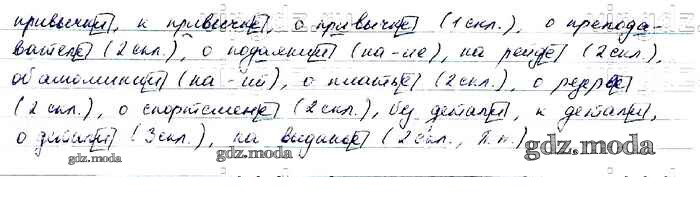 привычки, к привычке, о привычке (1 скл.), о препода-
вателе (2 скл.), о подаянии (на -ие), на рейде (2 скл.),
об алюминии (на -ий), о платье (2 скл.), о ферзе
(2 скл.), о спортсмене (2 скл.), без детали, к детали,
о детали (3 скл.), на выдаче (2 скл., П.п.)
gdz.moda
gdz.moda
gdz.moda